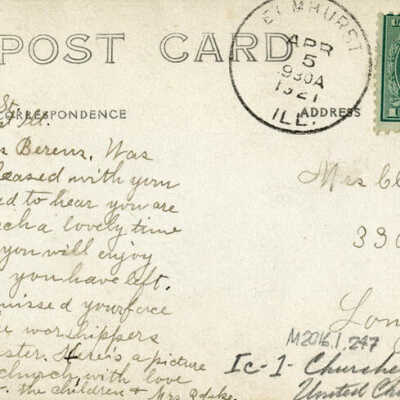 POST CARD
ELMHURST
APR
5
930A
1921
ILL.
CORRESPONDENCE
ADDRESS
St.
Berens. Was
pleased with your
to hear you are
a lovely time
you will enjoy
you have left.
missed your face
worshippers
Here's a picture
church, with love
the children + Mrs
Mrs
330
M2016.1.247
Ic-1- Churche
United Ch